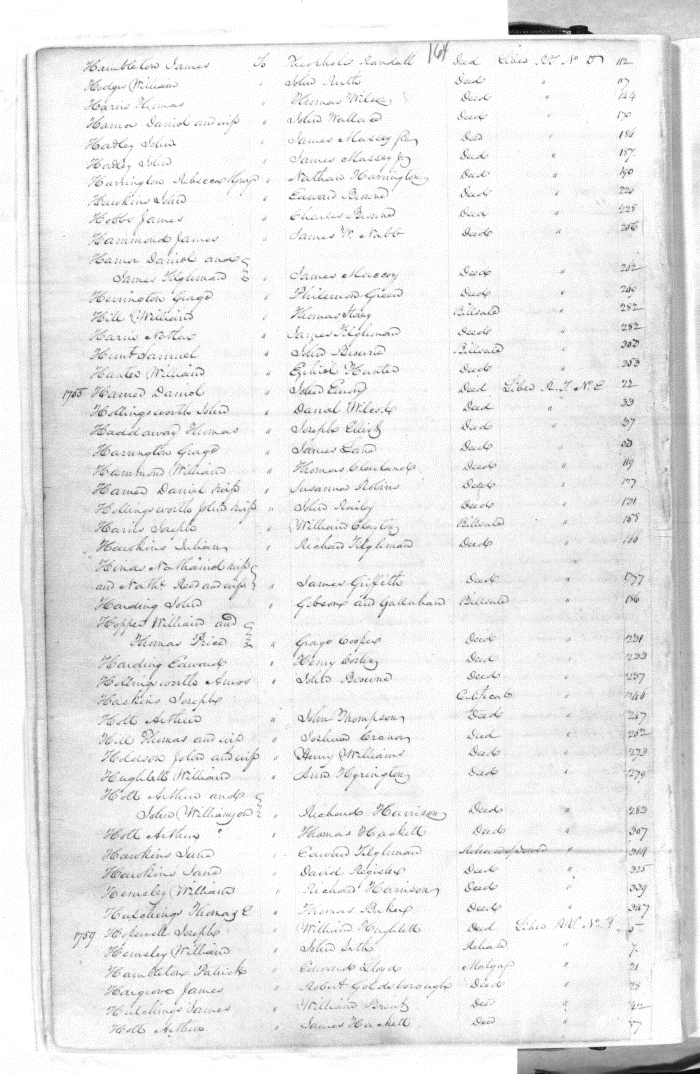 164
Hambleton James To Theophelis Randall Deed Liber RT No D 112
Hodges William " John Ruth Deed " 117
Harris Thomas " Thomas Wilson Deed " 144
Hamor Daniel and wife " John Wallace Deed " 170
Hadley John " James Massey Jr Deed " 186
Hadley John " James Massey Jr Deed " 187
Harrington Rebecca " Nathan Harrington Deed " 190
Hawkins John " Edward Browne Deed " 221
Hobbs James " Charles Browne Deed " 228
Hammond James " James W. Nabb Deed " 256
Hamor Daniel and
James Tilghman " James Maccoy Deed " 262
Herrington Grago " Philemon Green Deed " 269
Hill William " Thomas Story Billsale " 282
Harris " James Tilghman Deed " 282
Hunt Samuel " John Browne Billsale " 303
Hunter William " Ezekiel Hunter Deed " 353
1755 Hamer Daniel " John Emory Deed Liber R.T. No. E 22
Hollingsworth John " Daniel Wilcox Deed " 33
Haddaway Thomas " Joseph Elliott Deed " 37
Harrington Grago " James Lane Deed "
Hammond William " Thomas Cleveland Deed " 119
Hamer Daniel & wife " Susanna Robins Deed " 127
Hollingsworth John & wife " John Railey Deed " 131
Harris Joseph " William Clayton Billsale " 155
Hawkins Julian " Richard Tilghman Deed " 156
Hinds Nathaniel & wife
and Nathl. Read and wife " James Griffith Deed " 177
Harding John " Gibson and Gallahan Billsale " 186
Hopper William and
Thomas Price " Grago Cooper Deed " 231
Harding Edward " Henry Costin Deed " 233
Hollingsworth Amos " John Browne Deed " 237
Haskins Joseph Certificate " 246
Holt Arthur " John Thompson Deed " 247
Hill Thomas and wife " Joshua Cranor Deed " 262
Hobson John and wife " Henry Williams Deed " 273
Hughlett William " Ann Hyrington Deed " 279
Holt Arthur and
John Williamson " Richard Harrison Deed " 283
Holt Arthur " Thomas Hackett Deed " 307
Hawkins Jane " Edward Tilghman Release of Dower " 314
Hawkins Jane " David Register Deed " 325
Hemsley William " Richard Harrison Deed " 339
Hutchings Thomas E " Thomas Baker Deed " 347
1759 Hopewell Joseph " William Hughlett Deed Liber RT No. F 5
Hemsley William " John Seth Release " 7
Hambleton Patrick " Edward Lloyd Mortgage " 21
Hargrove James " Robert Goldsborough Deed " 28
Hutchings James " William Bront Deed " 42
Holt Arthur " James Hackett Deed " 57